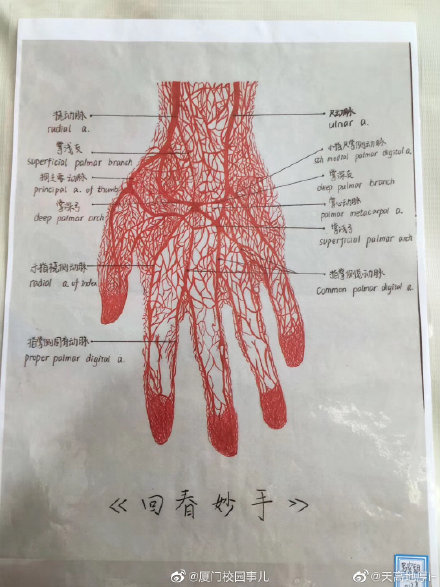 桡动脉
radial a.
掌浅支
superficial palmar branch
拇主要动脉
principal a. of thumb
掌深弓
deep palmar arch
示指桡侧动脉
radial a. of index
指掌侧固有动脉
proper palmar digital a.
尺动脉
ulnar a.
小指尺掌侧动脉
5th medial palmar digital a.
掌深支
deep palmar branch
掌心动脉
palmar metacarpal a.
掌浅弓
superficial palmar arch
指掌侧总动脉
Common palmar digital a.
《回春妙手》
@厦门校园事儿